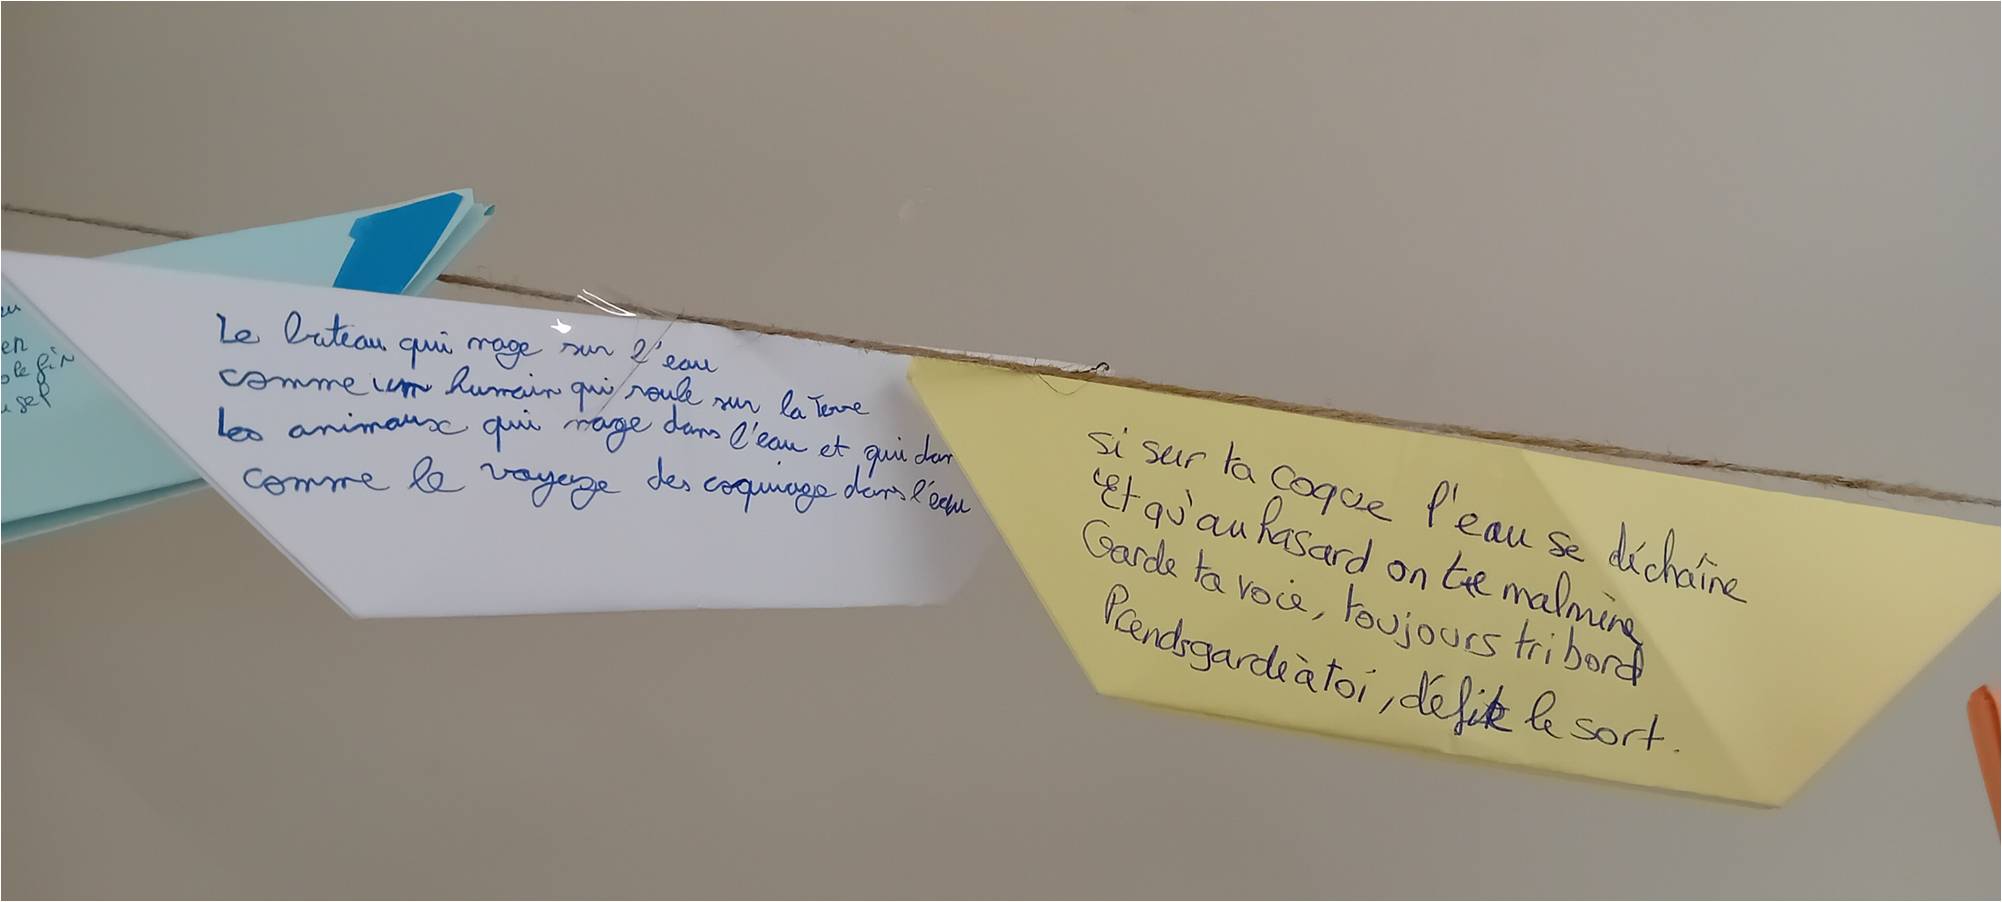 en
gel
Le bateau qui nage sur l'eau
comme un humain qui roule sur la Terre
Les animaux qui nage dans l'eau et qui dan
comme le voyage des coquiage dans l'eau
si sur ta coque l'eau se déchaîne
Et qu'au hasard on te malmène
Garde ta voie, toujours tribord
Prends garde à toi, défie le sort.